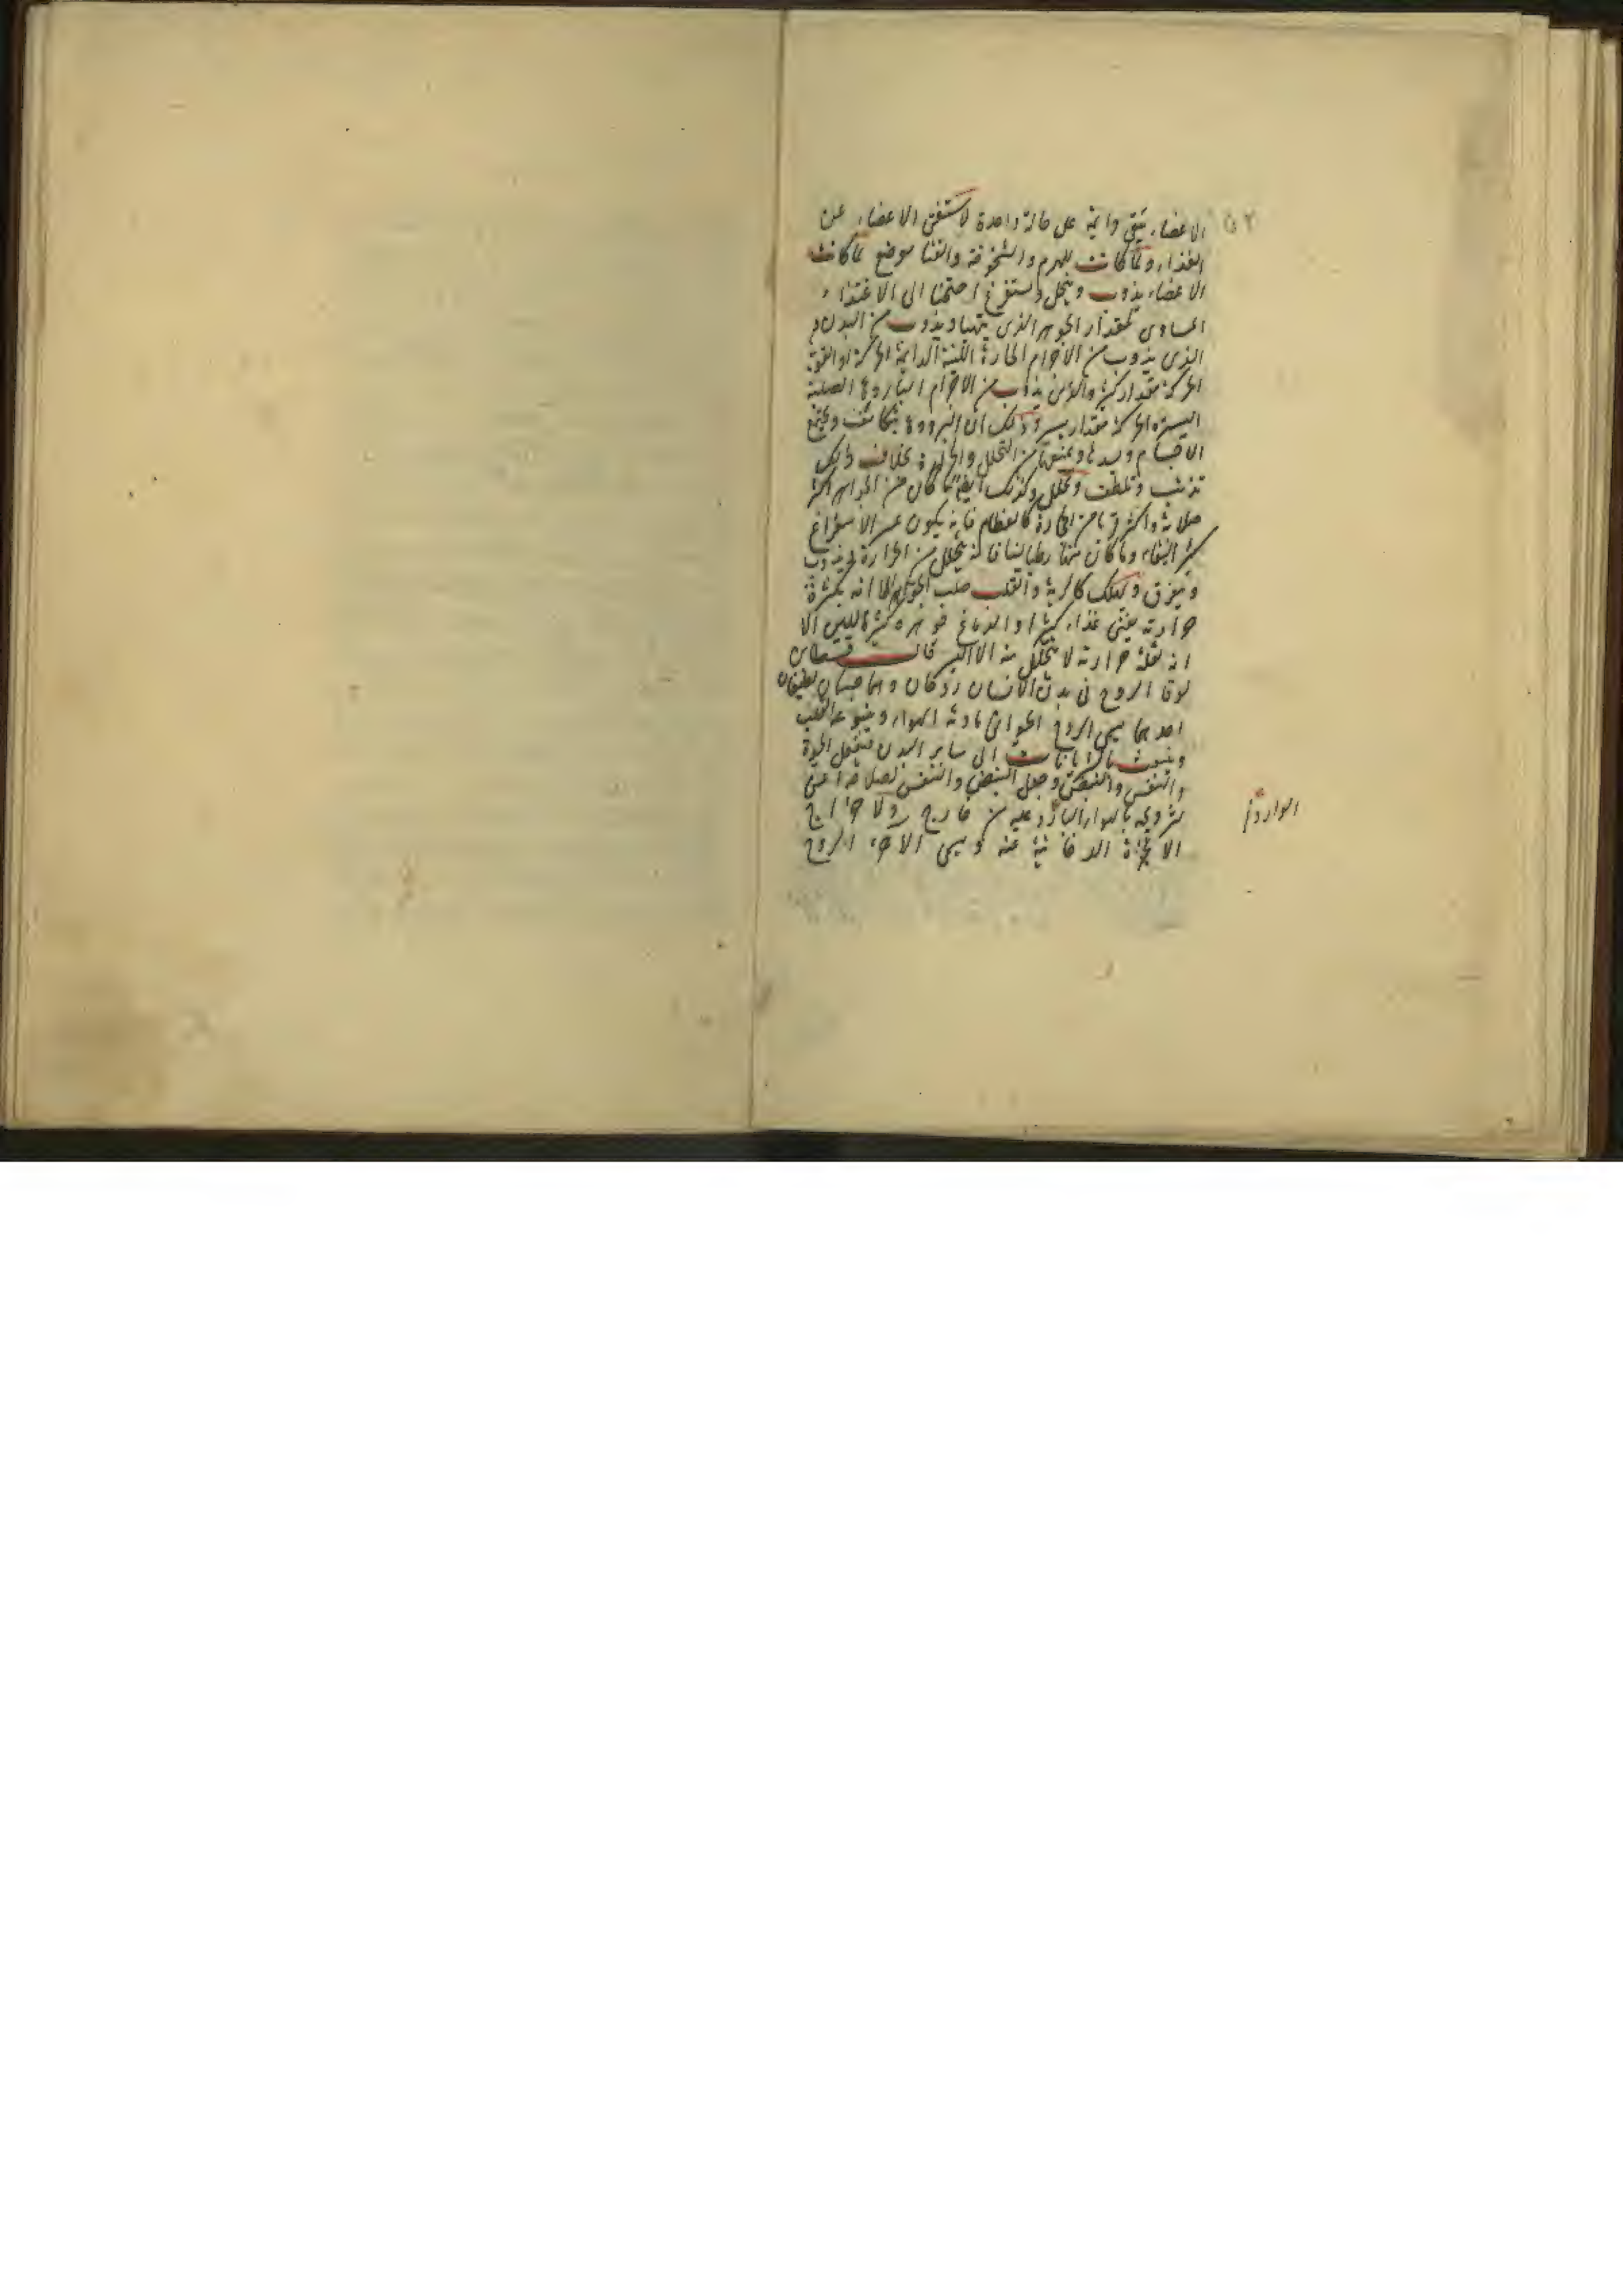 ٥٢
الاعضاء يبقى دايمة على حالة واحدة لاستغنى الاعضاء عن
الغذاء ولما كانت للهرم والشيخوخة والفنا موضع لما كانت
الاعضاء يذوب ويتحلل ويستفرغ احتجنا الى الاغتذاء
المساوى لمقدار الجوهر الذى ويذوب من البدن و
الذى يذوب من الاجرام الحارة اللينة الدايمة الحركة او القوية
الحركة مقدار كثير والذى يذوب من الاجرام الباردة الصلبة
اليسيرة الحركة مقدار يسير وذلك ان البرودة يتكاثف ويجمع
الاجسام ويمنعها من التحلل والحرارة بخلاف ذلك
تذيب وتلطف وتحلل وكذلك ايضا ما كان من الجواهر اكثر
صلابة كالعظام فانه يكون عسر الاستفراغ
البقاء وما كان منها رطبا لينا فانه يتحلل من الحرارة
كالرية والقلب صلب الجوهر الا انه لكثرة
حرارته غذاء كثيرا والدماغ جوهره كثير اللين الا
انه لقلة حرارته لا يتحلل منه الا اليسير قال قسطا بن
لوقا الروح فى بدن الانسان روحان وهما جسمان لطيفان
احدهما يسمى الروح الحيوانى مادته الهواء وينبوعه القلب
وينبعث بالشريانات الى ساير البدن فيفعل الحيوة
والنفس والنبض وجعل النبض والتنفس
بالهواء البارد عليه من خارج ولاخراج
الوارد
الابخرة الدخانية عنه ويسمى الاخر الروح